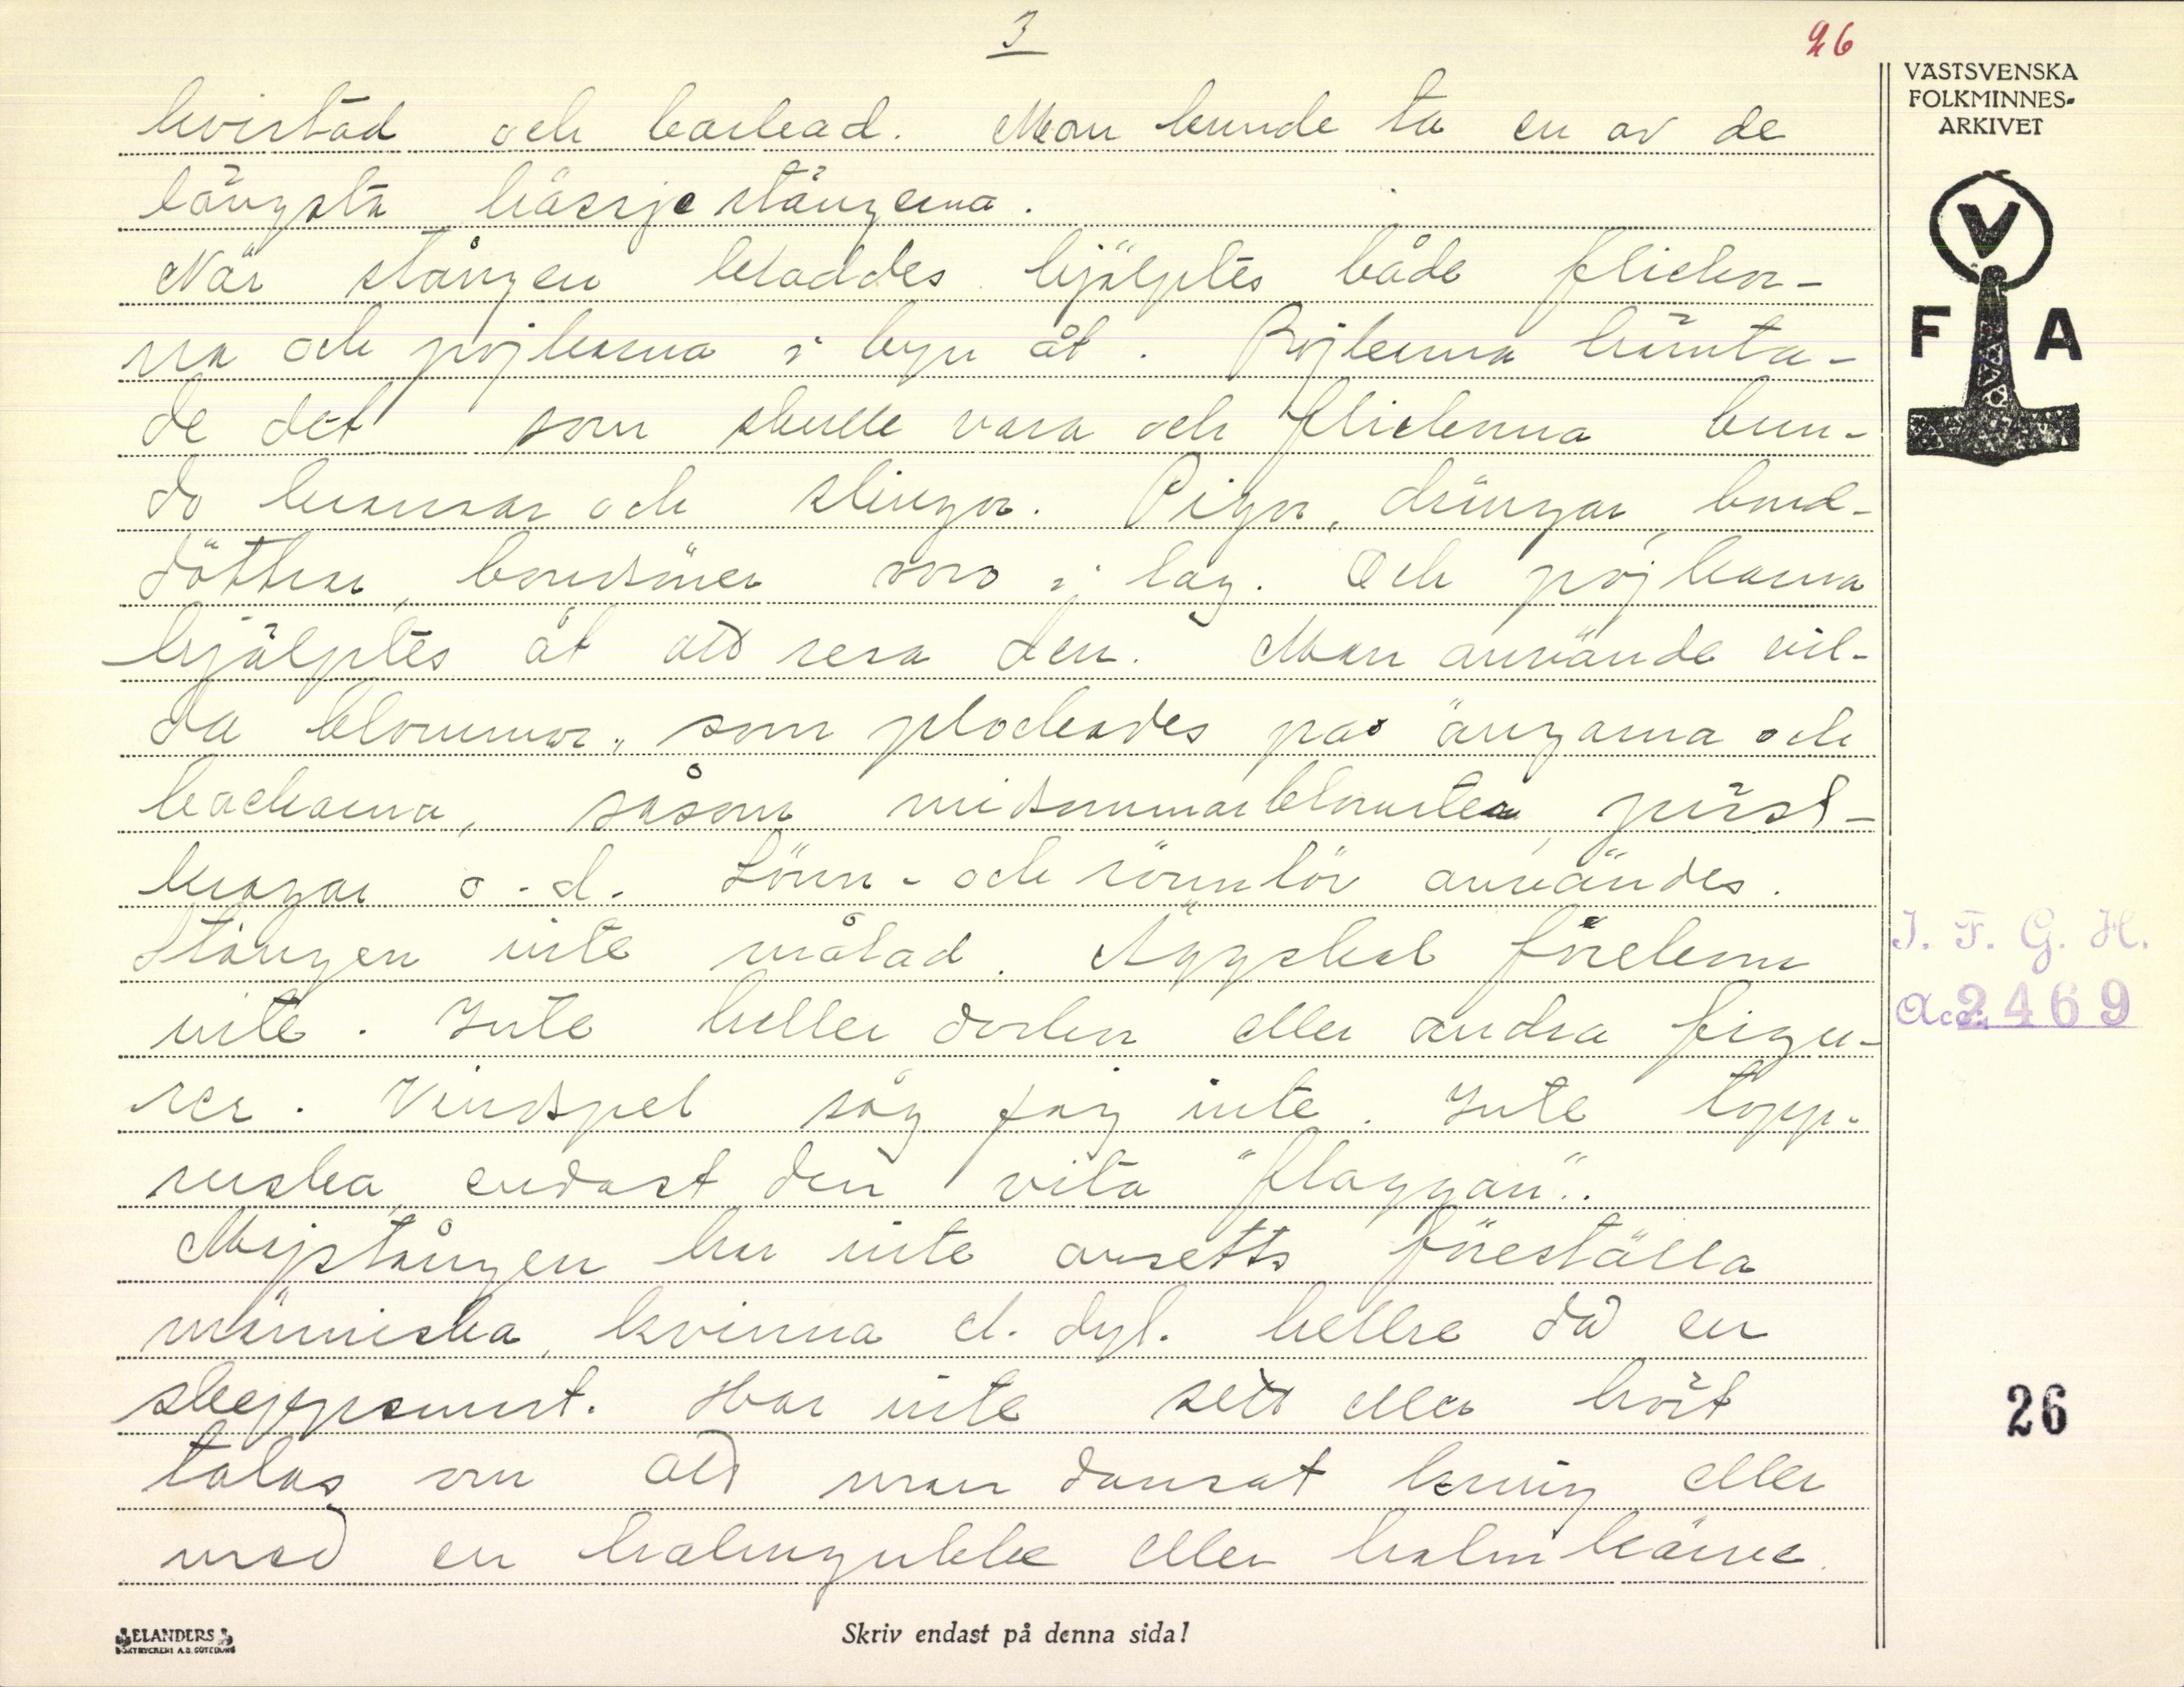 3
26
VÄSTSVENSKA
FOLKMINNES-
ARKIVET
V
F A
kvistad och barkad. Man kunde ta en av de
längsta hässjestängerna.
När stången kläddes hjälptes både flickor-
na och pojkarna i byn åt. Pojkarna hämta-
de det som skulle vara och flickorna bun-
do kransar och slingor. Pigor, drängar, bond-
döttrar, bondsöner voro i lag. Och pojkarna
hjälptes åt att resa den. Man använde vil-
da blommor, som plockades på ängarna och
backarna, såsom midsommarblomster, präst-
kragar o.d. Lönn- och rönnlöv användes.
Stången inte målad. Äggskal förekom
inte. Inte heller dockor eller andra figu-
rer. Vindspel såg jag inte. Inte topp-
ruska, endast den vita "flaggan".
Majstången har inte ansetts föreställa
människa, kvinna el. dyl. hellre då en
skeppsmast. Har inte sett eller hört
talas om att man dansat kring eller
med en halmgubbe eller halmkärve.
I. F. G. H.
Acc. 2469
26
ELANDERS
BOKTRYCKERI A.B. GÖTEBORG
Skriv endast på denna sida!